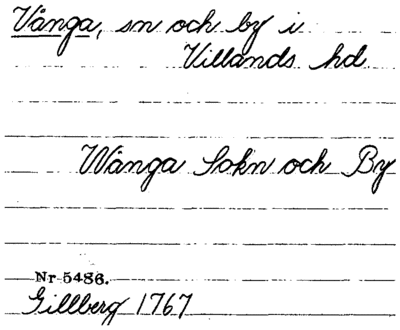 Vånga, sn och by i
Villands hd
Wånga Sokn och By
Nr 5486.
Gillberg 1767